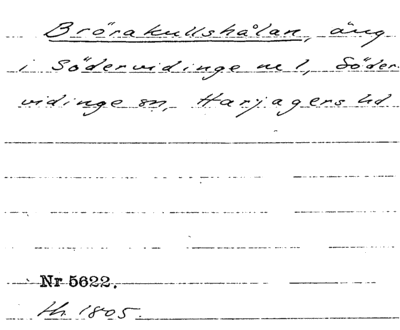 Brörakullshålan, äng
i Södervidinge nr 1, Söder-
vidinge sn, Harjagers hd
Nr 5622.
th. 1805.